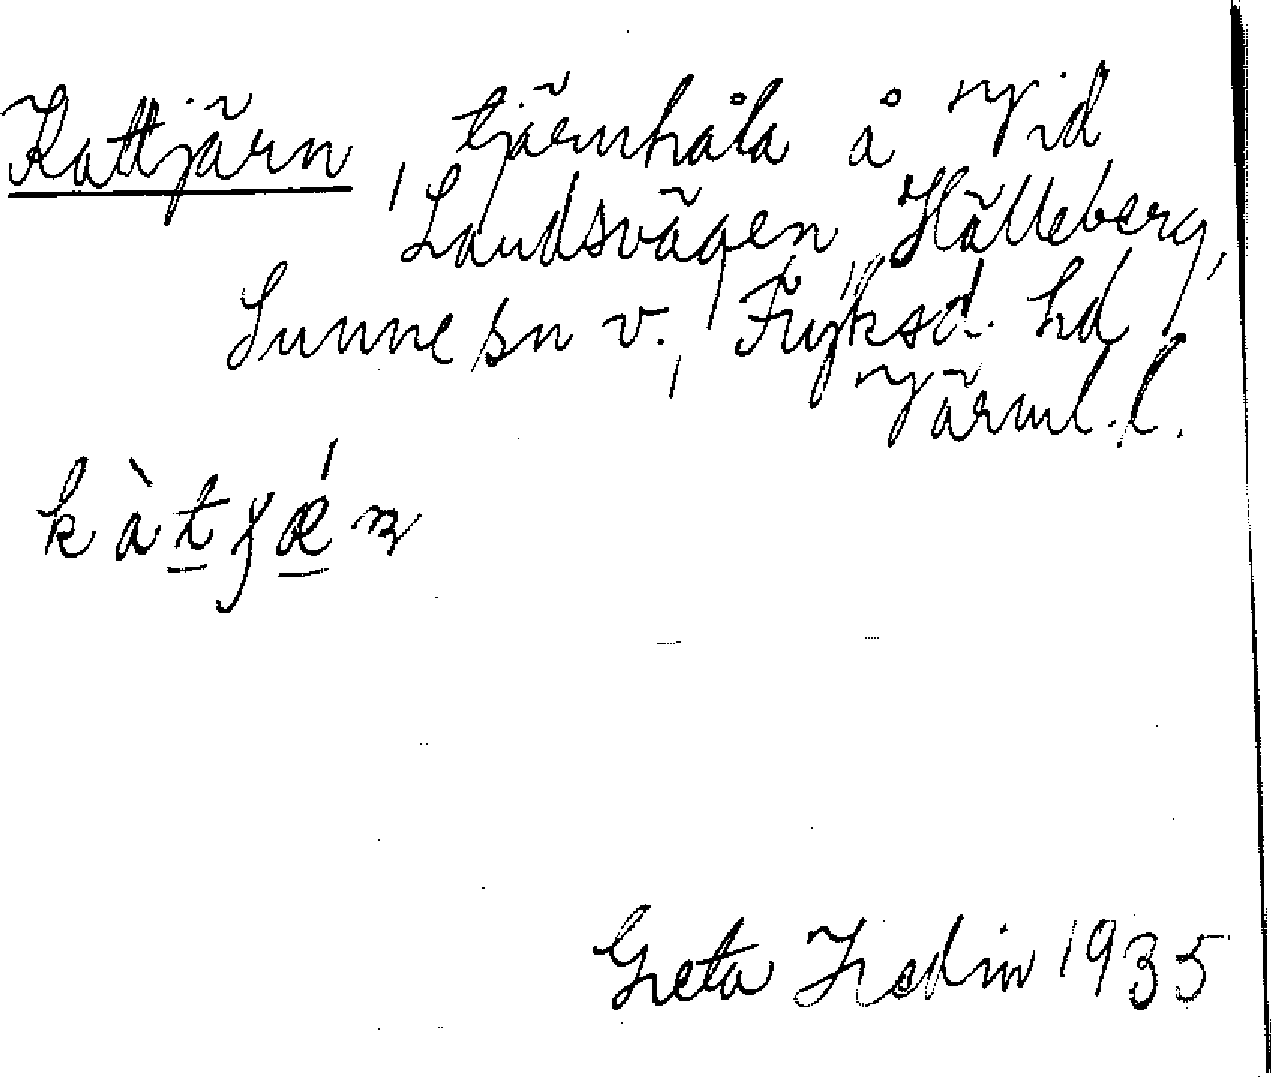 Kattjärn, tjärnhåla å Vid
Landsvägen, Hälleberg,
Sunne sn v., Fryksd. hd
Värml. l.
kàtjǽn
Greta Hedin 1935